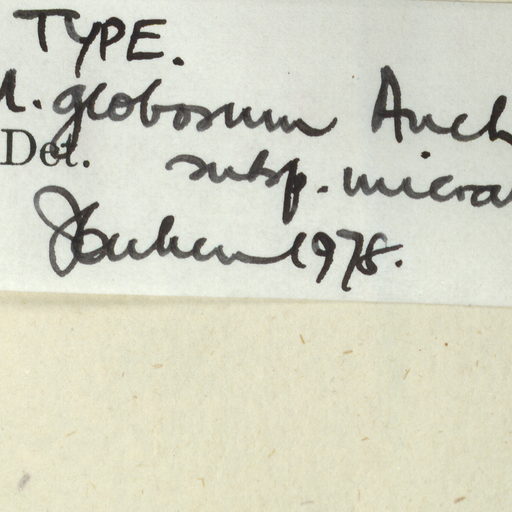 TYPE.
M. globosum Auch
Det. subsp. micra
1978.